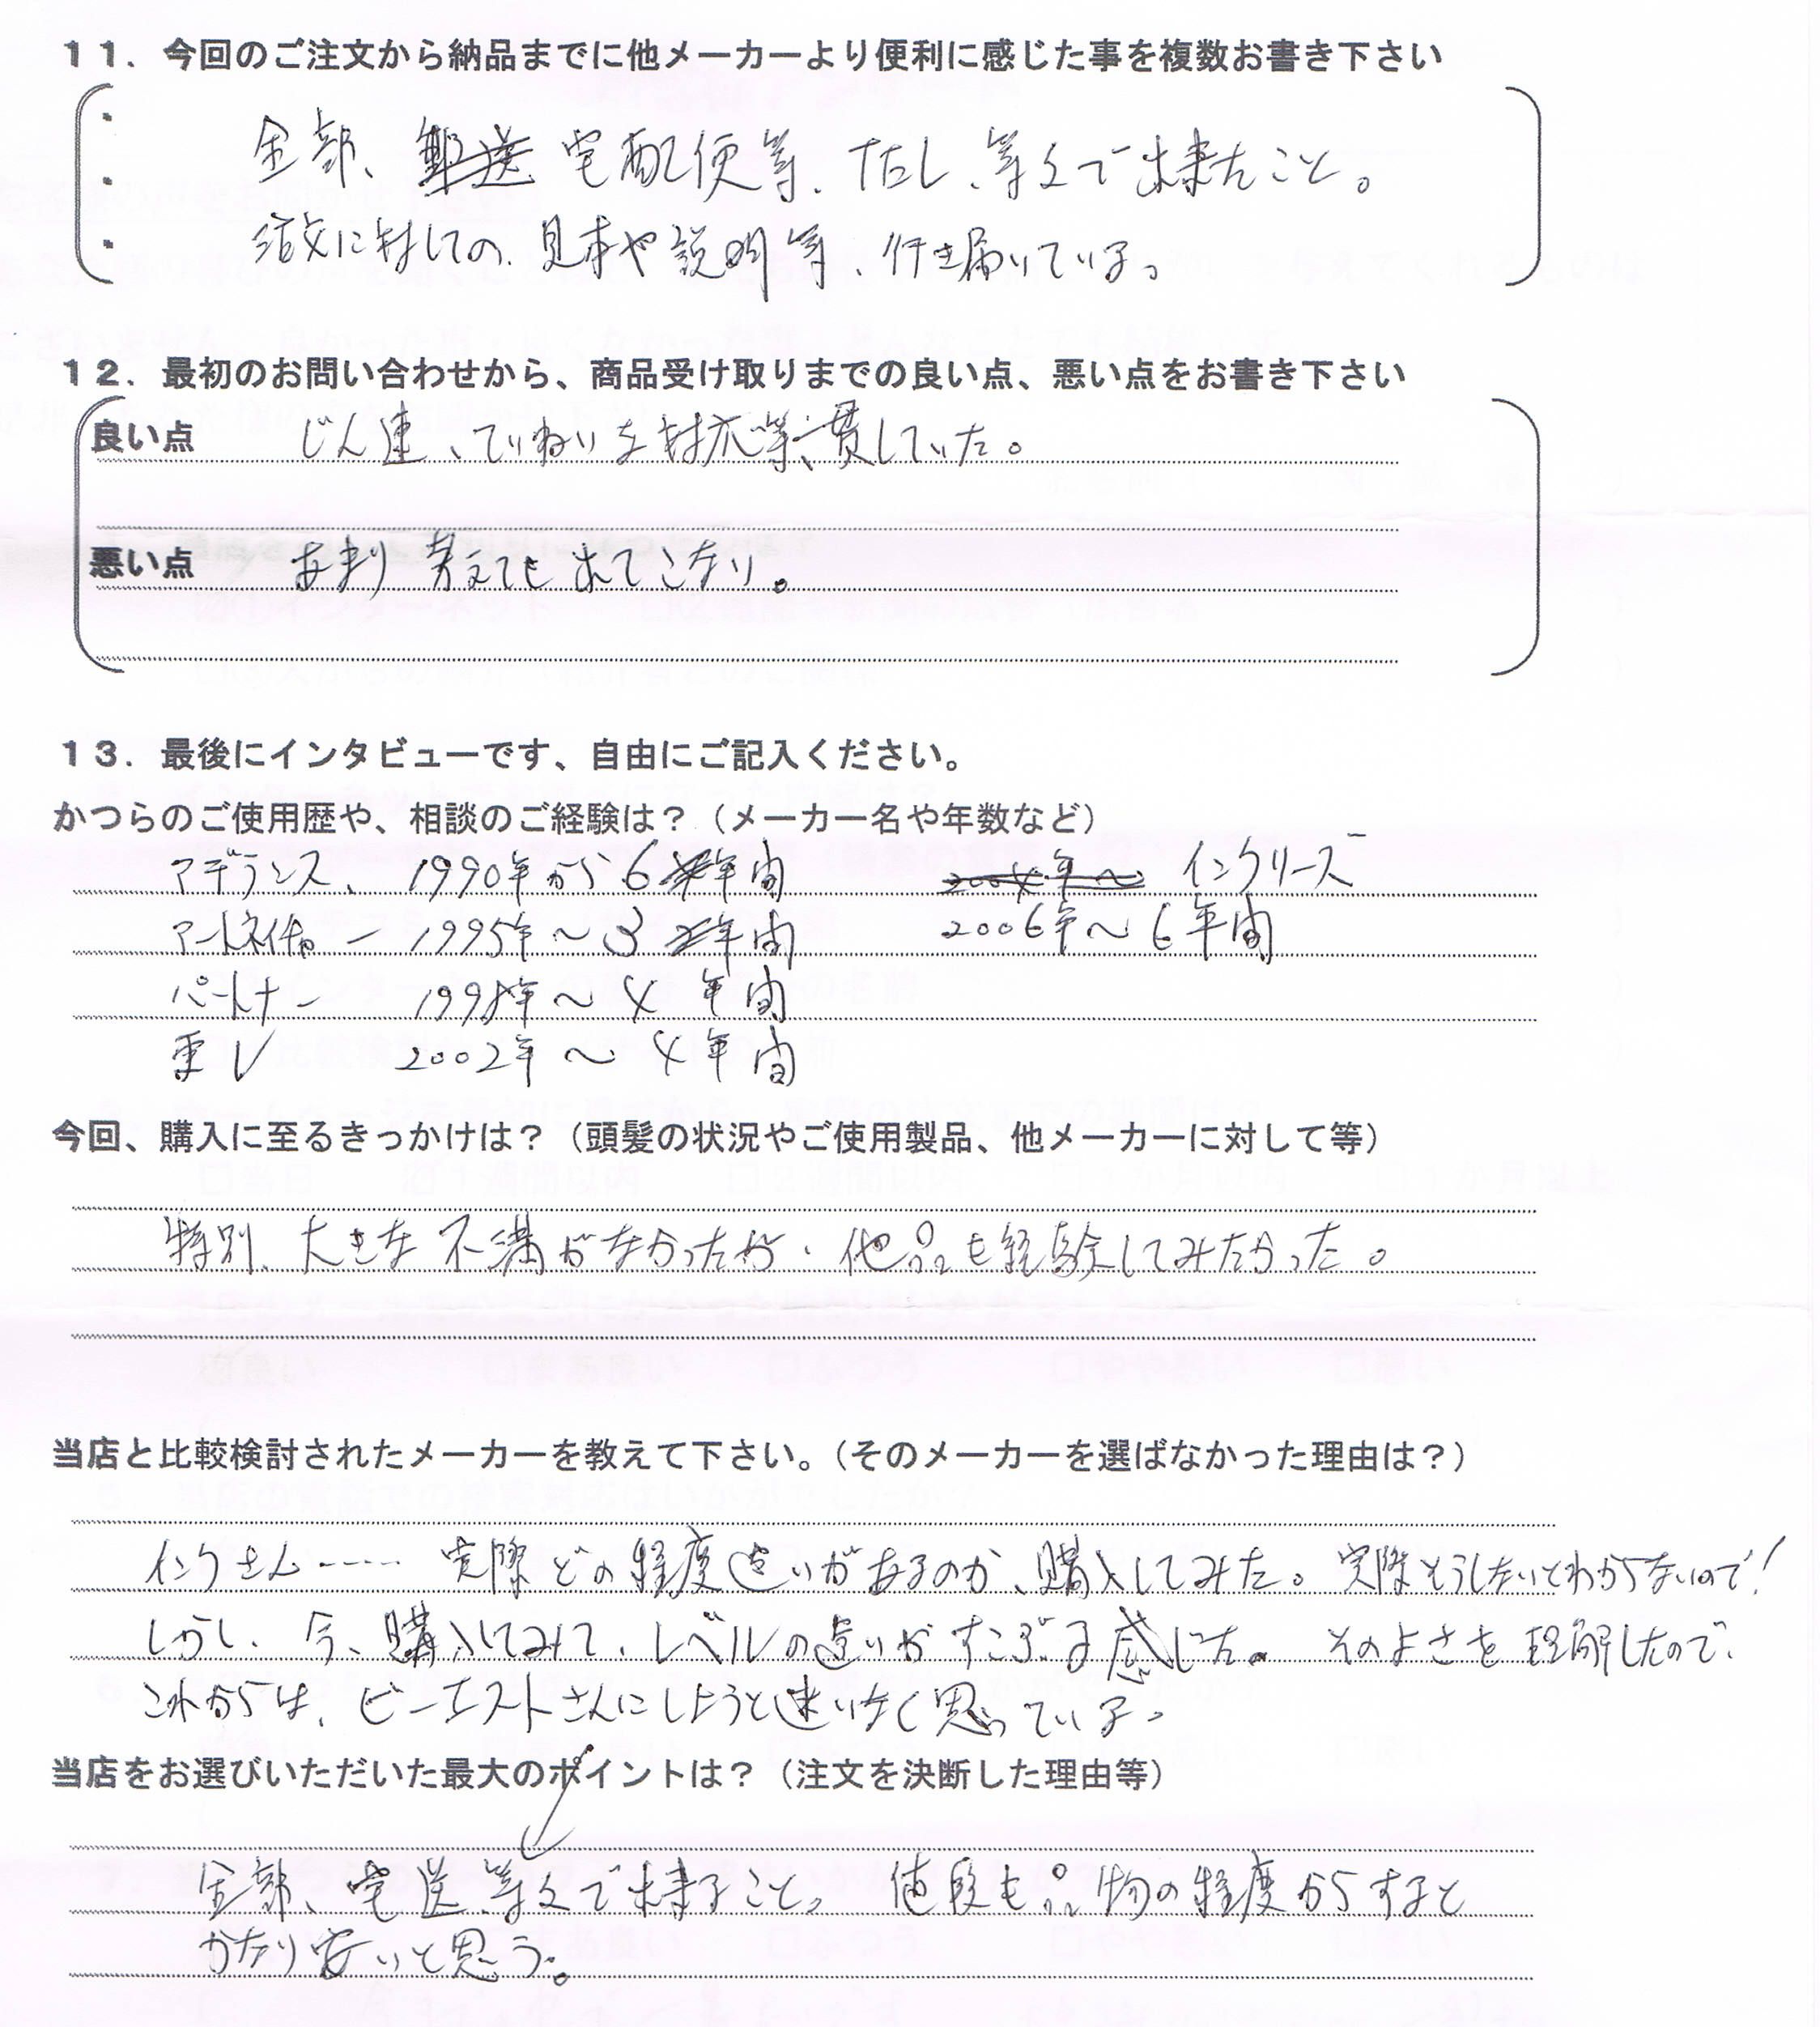 11．今回のご注文から納品までに他メーカーより便利に感じた事を複数お書き下さい
・
全部、宅配便等、TEL、等々で出来たこと。
・
・
注文に対しての、見本や説明等、行き届いている。
12．最初のお問い合わせから、商品受け取りまでの良い点、悪い点をお書き下さい
良い点 じん速、ていねいな対応等、一貫していた。
悪い点 あまり考えても出てこない。
13．最後にインタビューです、自由にご記入ください。
かつらのご使用歴や、相談のご経験は？（メーカー名や年数など）
アデランス、 1990年から6年間 インクリーズ
アートネイチャー 1995年～3年間 2006年～6年間
パートナー 1998年～4年間
東レ 2002年～4年間
今回、購入に至るきっかけは？（頭髪の状況やご使用製品、他メーカーに対して等）
特別、大きな不満がなかったが、他品も経験してみたかった。
当店と比較検討されたメーカーを教えて下さい。（そのメーカーを選ばなかった理由は？）
インクさん…… 実際どの程度違いがあるのか、購入してみた。実際そうしないとわからないので！
しかし、今、購入してみて、レベルの違いがすこぶる感じた。そのよさを理解したので、
これからは、ピーエストさんにしようと迷いなく思っている。
当店をお選びいただいた最大のポイントは？（注文を決断した理由等）
全部、宅送、等々で出来ること。 値段も品物の程度からすると
かなり安いと思う。